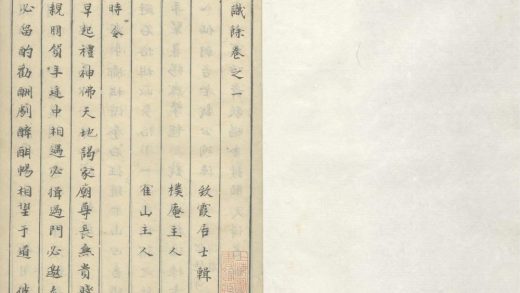 識餘卷之一
霞居士輯
樸庵主人
山主人
時令
早起禮神佛天地謁家廟尊長無貴賤
親朋賀年途中相遇必揖過門必邀
必留酌勸酬劇醉酣暢相望于道